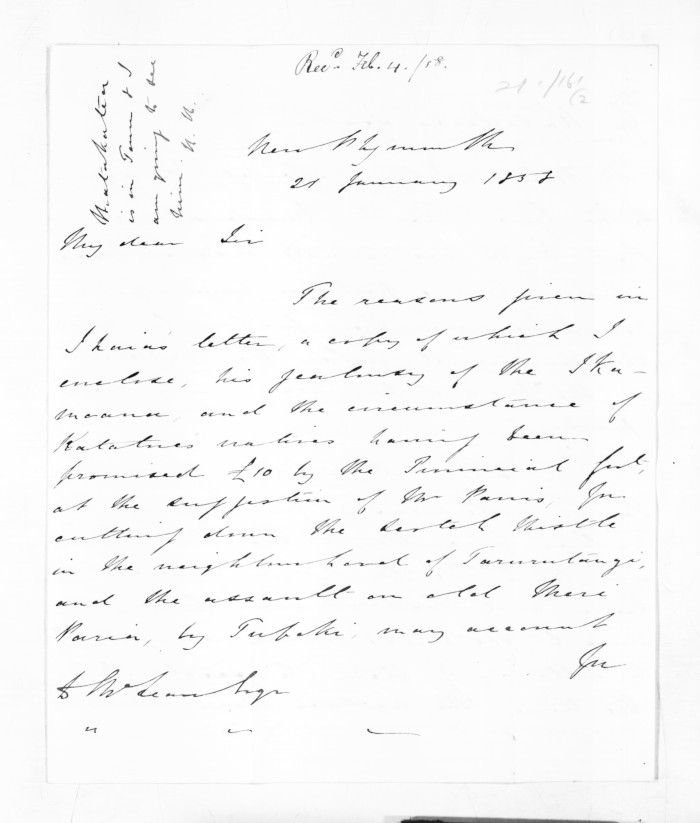 Recd. Feb. 4./18.
21./161
(2
Matakatea
is in Town & I
am going to see
him. H. H.
New Plymouth
21 January 1858
My dear Sir
The reasons given in
Ihaia's letter, a copy of which I
enclose, his jealousy of the Ika-
moana, and the circumstance of
Katatores natives having been
promised £10 by the Provincial Govt,
at the suggestion of Mr Parris, for
cutting down the Scotch thistle
in the neighbourhood of Tarurutangi,
and the assault on old Mere
Paria, by Tupaki, may account
for
D McLean Esqr